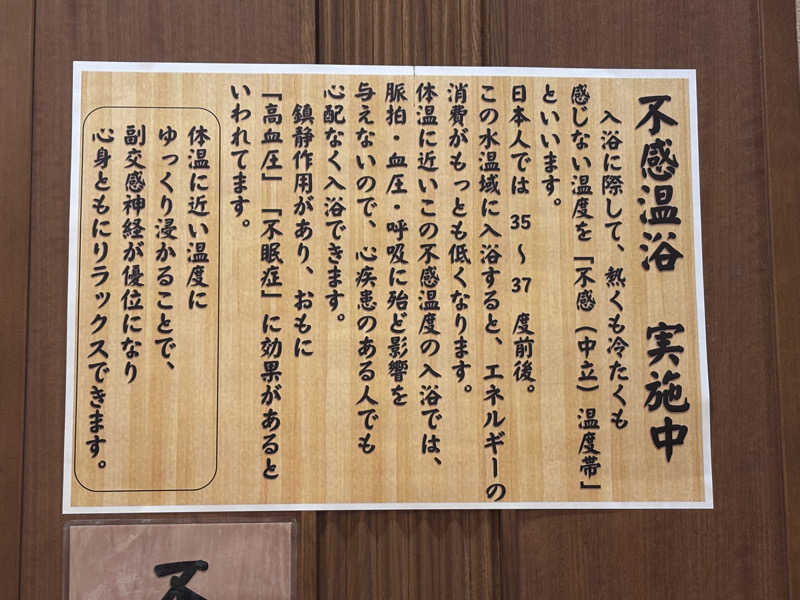 不感温浴　実施中
入浴に際して、熱くも冷たくも
感じない温度を「不感（中立）温度帯」
といいます。
日本人では 35 〜 37 度前後。
この水温域に入浴すると、エネルギーの
消費がもっとも低くなります。
体温に近いこの不感温度の入浴では、
脈拍・血圧・呼吸に殆ど影響を
与えないので、心疾患のある人でも
心配なく入浴できます。
鎮静作用があり、おもに
「高血圧」「不眠症」に効果があると
いわれてます。
体温に近い温度に
ゆっくり浸かることで、
副交感神経が優位になり
心身ともにリラックスできます。